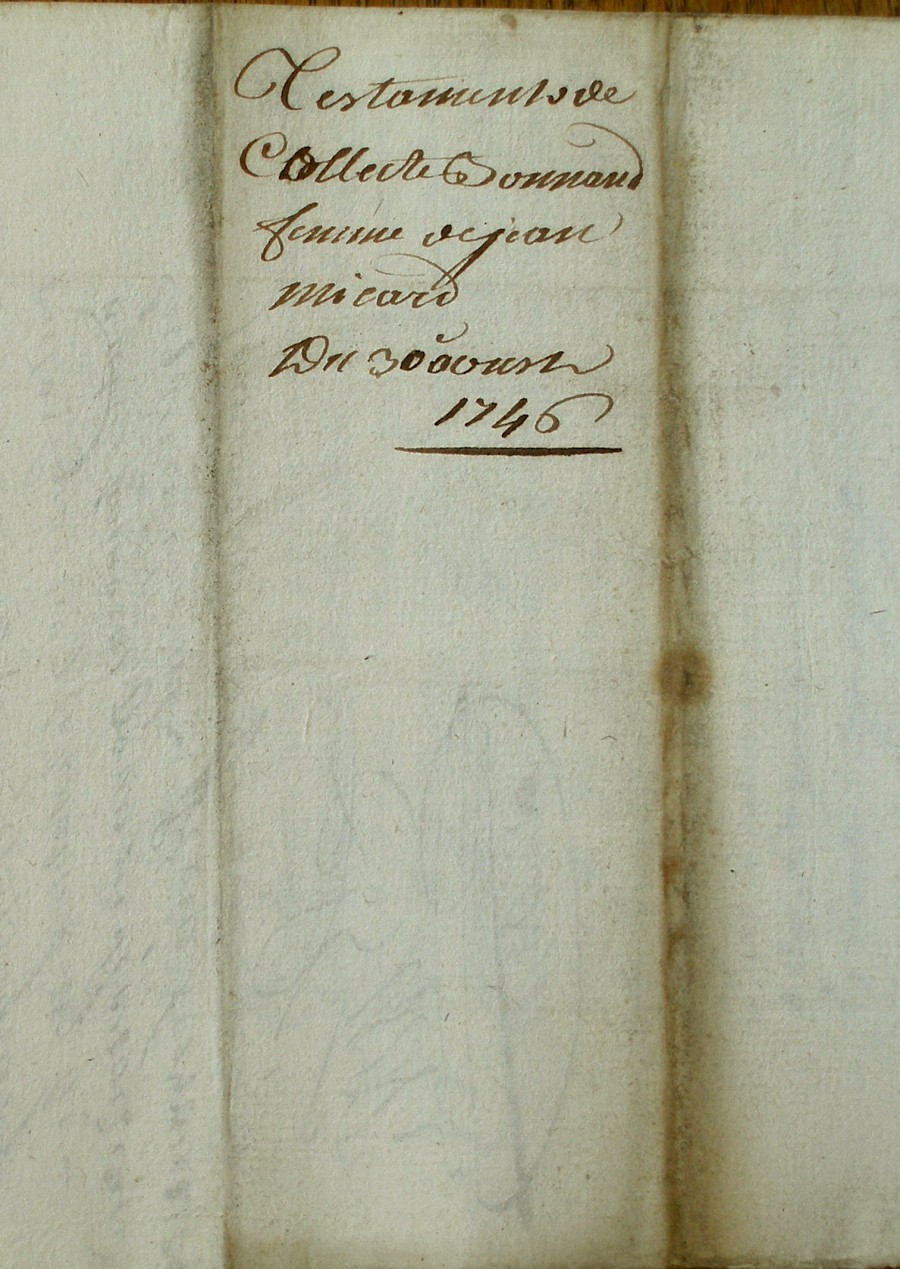 Testament de
Collecte Bonnaud
femme de jean
micard
Du 30 aoust
1746